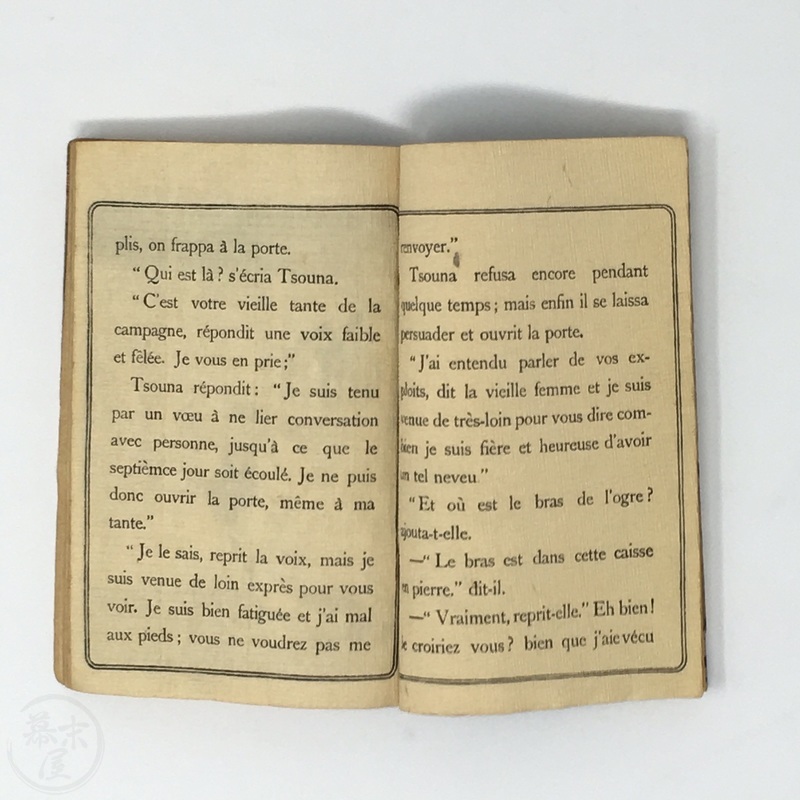 plis, on frappa à la porte.
“Qui est là? s'écria Tsouna.
“C'est votre vieille tante de la
campagne, répondit une voix faible
et fêlée. Je vous en prie;”
Tsouna répondit: “Je suis tenu
par un vœu à ne lier conversation
avec personne, jusqu'à ce que le
septièmce jour soit écoulé. Je ne puis
donc ouvrir la porte, même à ma
tante.”
“Je le sais, reprit la voix, mais je
suis venue de loin exprès pour vous
voir. Je suis bien fatiguée et j'ai mal
aux pieds; vous ne voudrez pas me
renvoyer.”
Tsouna refusa encore pendant
quelque temps; mais enfin il se laissa
persuader et ouvrit la porte.
“J'ai entendu parler de vos ex-
ploits, dit la vieille femme et je suis
venue de très-loin pour vous dire com-
bien je suis fière et heureuse d'avoir
un tel neveu”
“Et où est le bras de l'ogre?
ajouta-t-elle.
—“Le bras est dans cette caisse
en pierre.” dit-il.
—“Vraiment, reprit-elle.” Eh bien!
le croiriez vous? bien que j'aie vécu
幕末屋